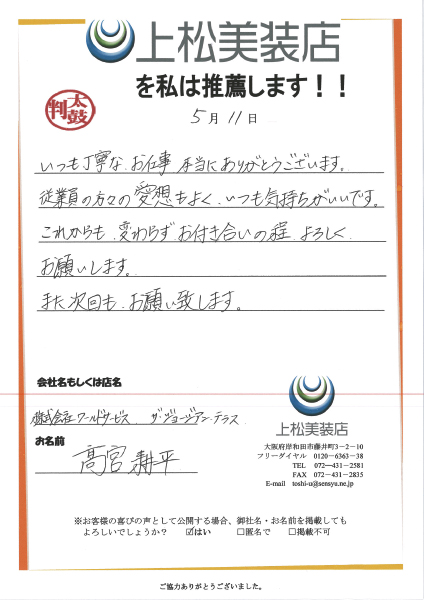 上松美装店
を私は推薦します！！
太鼓判
5月11日
いつも丁寧な お仕事 本当にありがとうございます。
従業員の方々の愛想もよく、いつも気持ちがいいです。
これからも、変わらず お付き合いの程 よろしく
お願いします。
また次回も、お願い致します。
会社名もしくは店名
株式会社ワールドサービス ザ・ジョージアン・テラス
お名前
高宮 耕平
上松美装店
大阪府岸和田市藤井町3－2－10
フリーダイヤル 0120－6363－38
TEL 072－431－2581
FAX 072－431－2835
E-mail toshi-u@sensyu.ne.jp
※お客様の喜びの声として公開する場合、御社名・お名前を掲載しても
よろしいでしょうか？ ☑はい □匿名で □掲載不可
ご協力ありがとうございました。